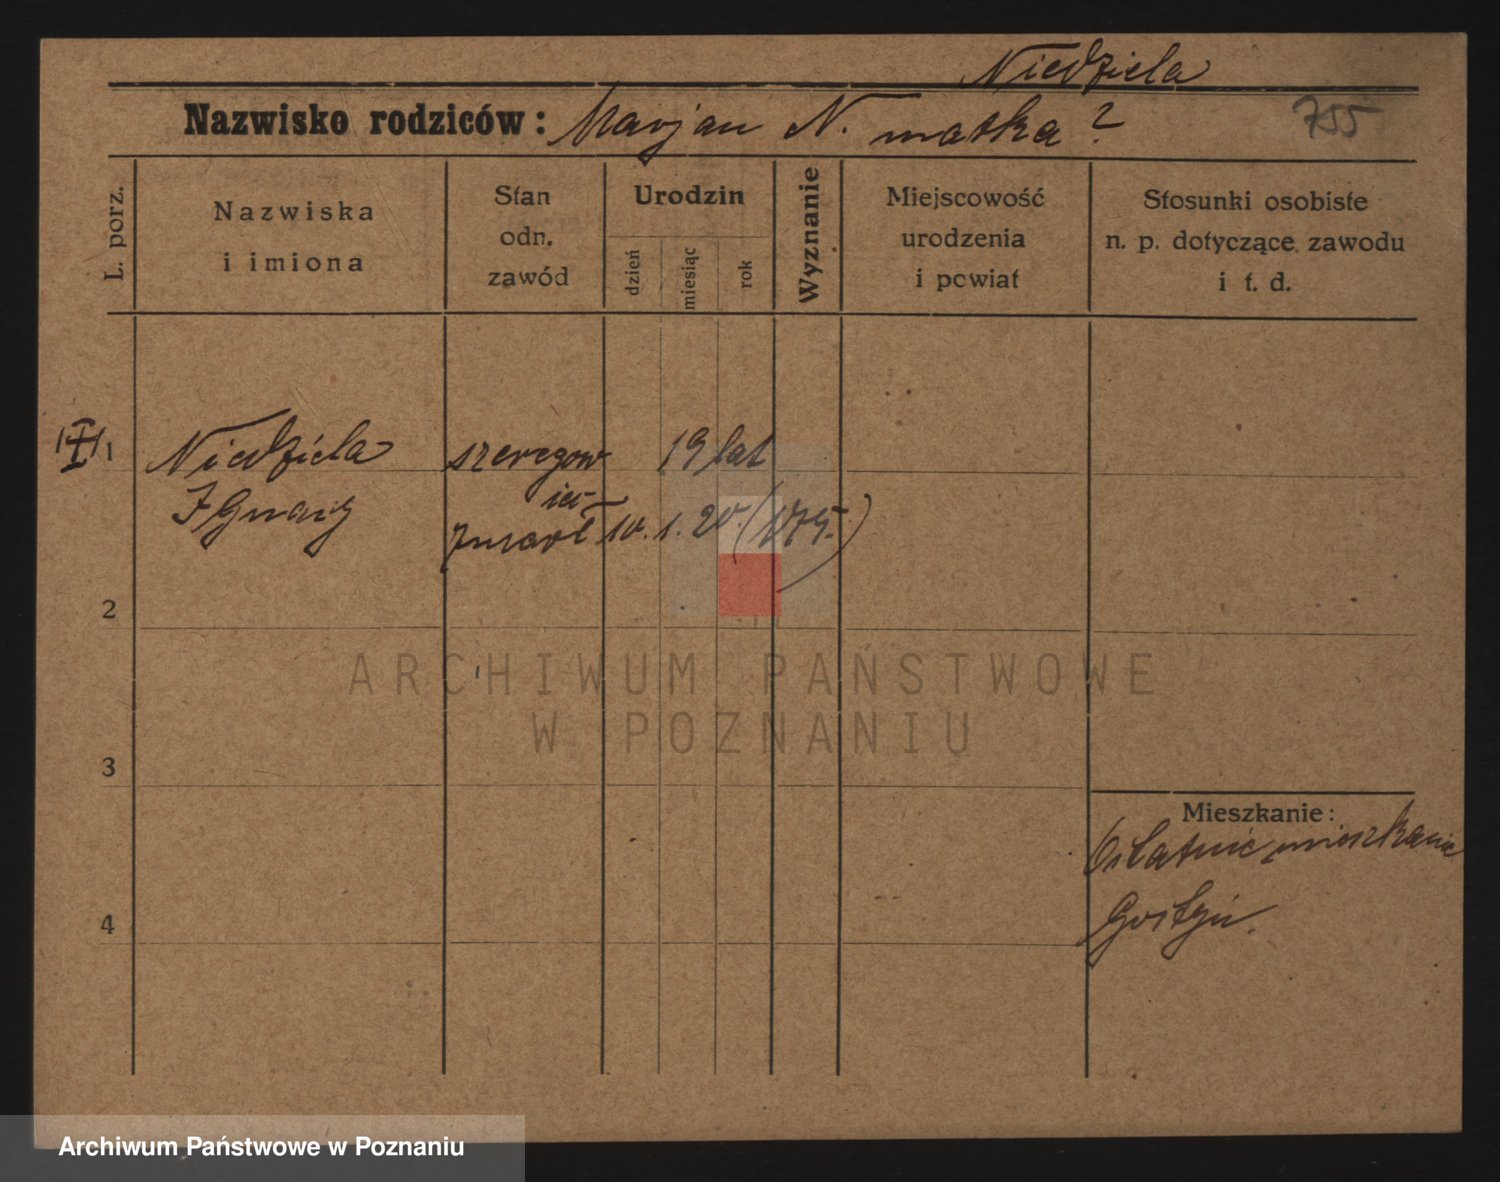 Niedziela
Nazwisko rodziców: Marjan N. matka?
755
L. porz.
Nazwiska
i imiona
Stan
odn.
zawód
Urodzin
dzień
miesiąc
rok
Wyznanie
Miejscowość
urodzenia
i powiat
Stosunki osobiste
n. p. dotyczące zawodu
i t. d.
1
Niedziela szeregow 19 lat
Ignacy iec
zmarł 10. 1. 20. (1075.)
2
ARCHIWUM PAŃSTWOWE
W POZNANIU
3
Mieszkanie:
Ostatnie mieszkanie
4
Gostyń.
Archiwum Państwowe w Poznaniu